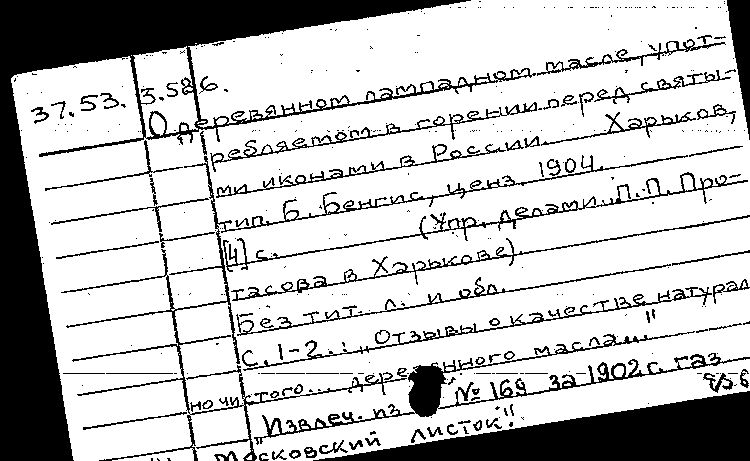 37.53. 3.586.
О деревянном лампадном масле, упот-
ребляемом в горении перед святы-
ми иконами в России. Харьков,
тип. Б. Бенгис, ценз. 1904.
[4] с. (Упр. делами П.П. Про-
тасова в Харькове).
Без тит. л. и обл.
С. 1-2.: „Отзывы о качестве натурал
но чистого... деревянного масла..."
"Извлеч. из № 169 за 1902 г. газ
Московский листок".